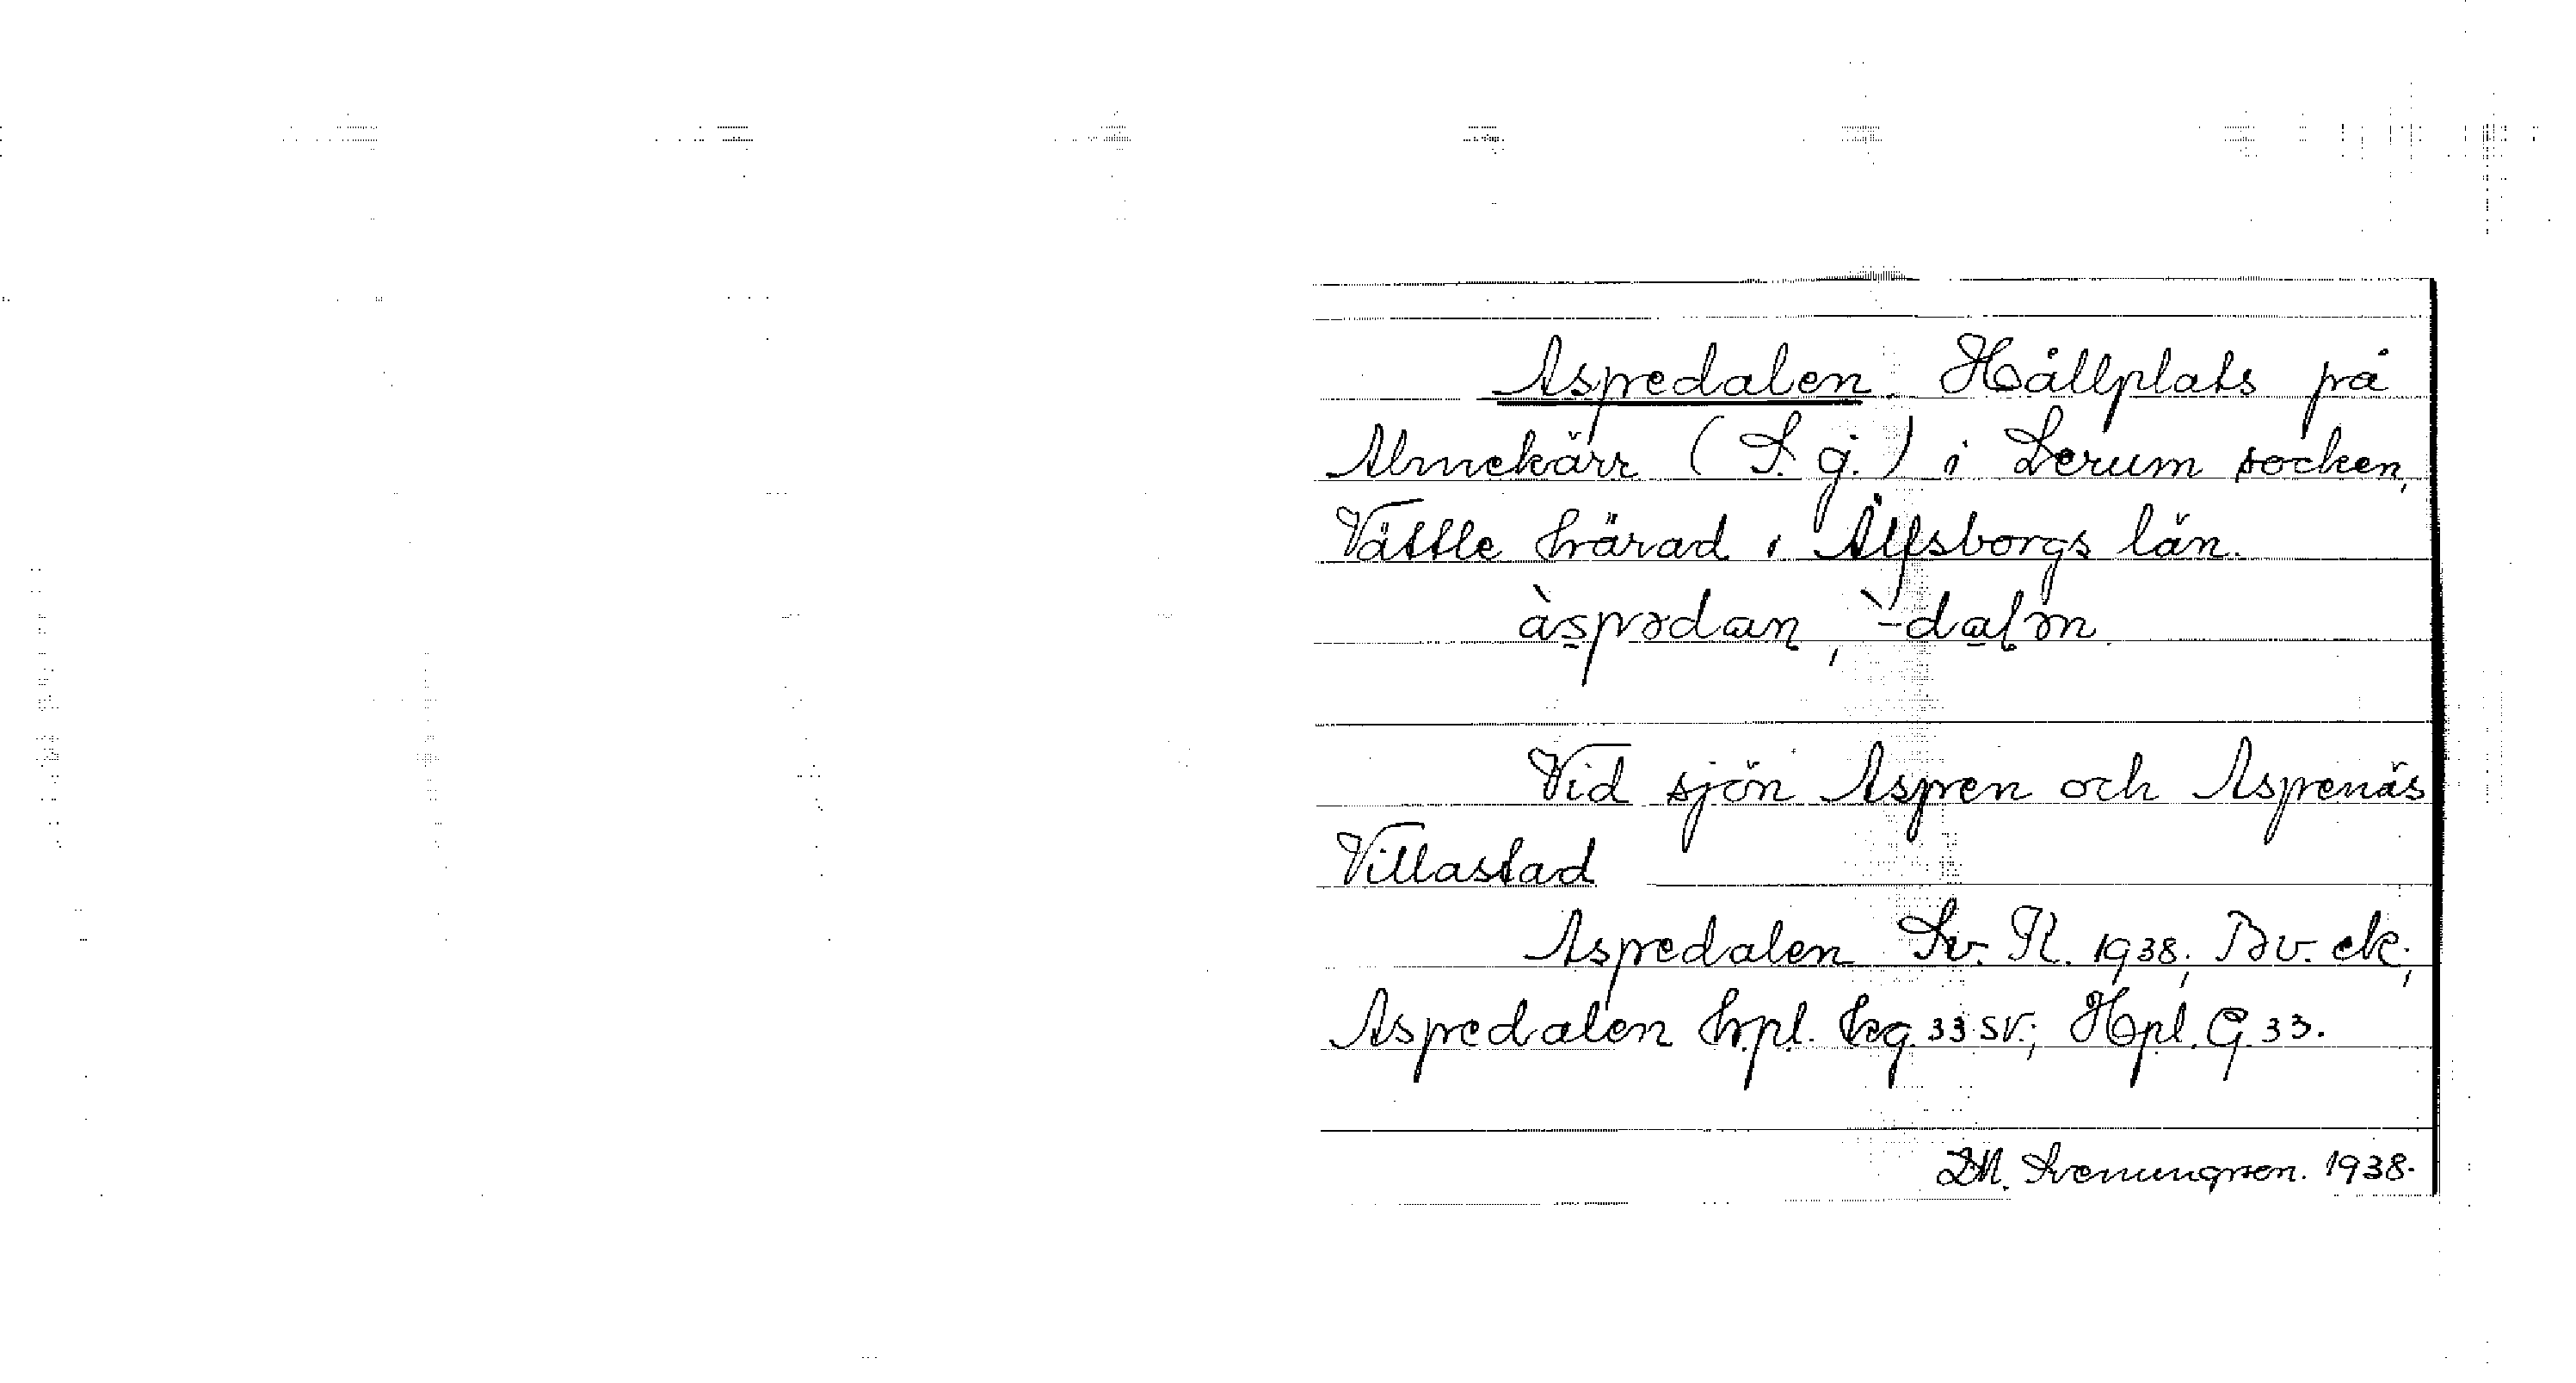 Aspedalen. Hållplats på
Almekärr (S. g.) i Lerum socken,
Vättle härad i Älfsborgs län.
àspədan, `-daḷən.
Vid sjön Aspen och Aspenäs
Villastad
Aspedalen Sv. R. 1938; Bv. ek;
Aspedalen hpl. kg. 33 SV.; Hpl. G. 33.
D.M. Svenungson. 1938.